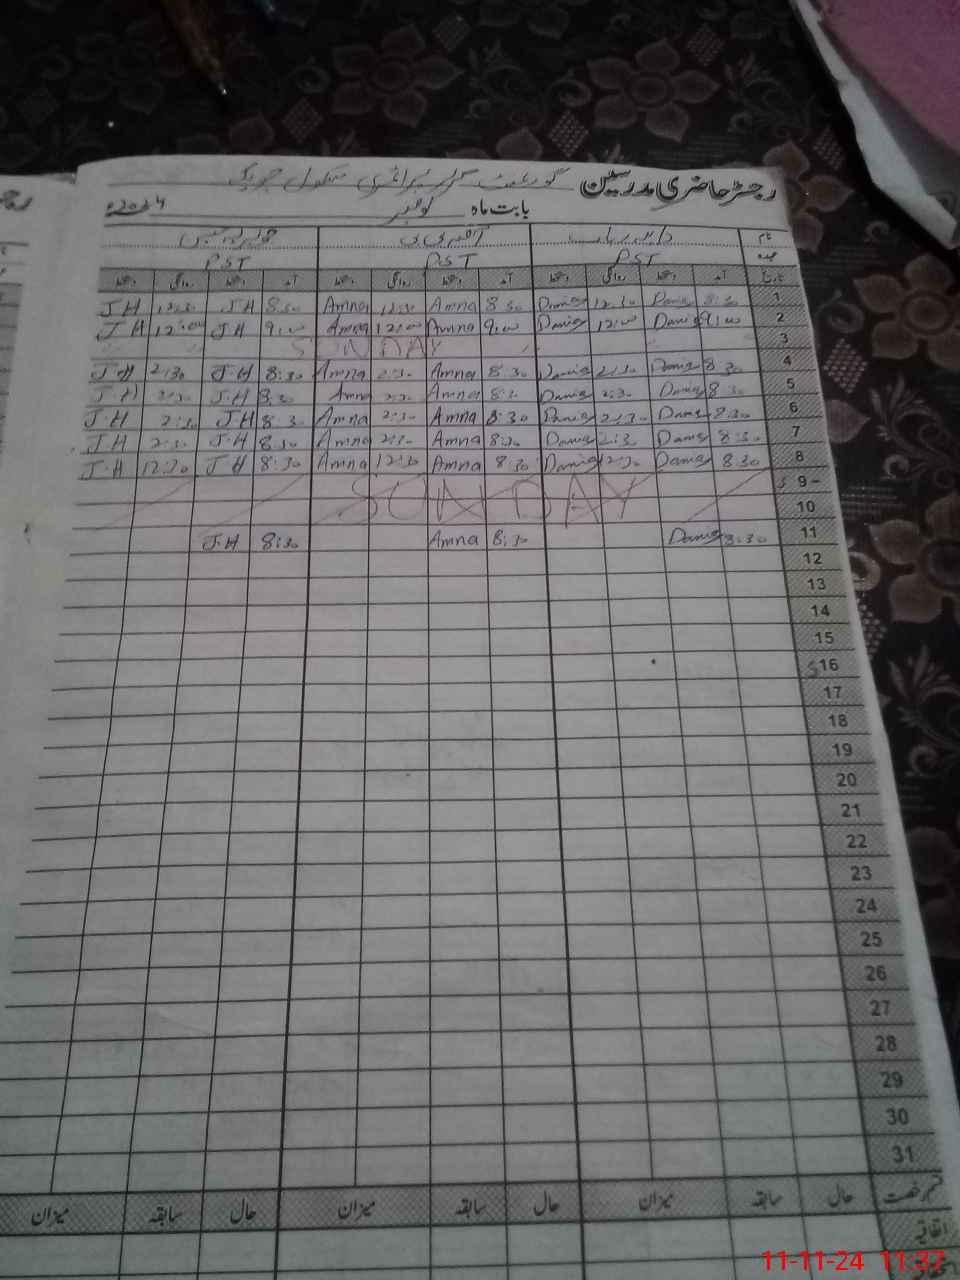 رجسٹر حاضری مدرسین گورنمنٹ گرلز پرائمری سکول
بابت ماہ نومبر 2024ء
نام
عہدہ PST PST PST
تاریخ آمد دستخط روانگی دستخط آمد دستخط روانگی دستخط آمد دستخط روانگی دستخط
1 8:30 Dania 12:30 Dania 8:30 Amna 12:30 Amna 8:30 J-H 12:30 J-H
2 9:00 Dania 12:00 Dania 9:00 Amna 12:00 Amna 9:00 J-H 12:00 J-H
3 SUNDAY
4 8:30 Dania 2:30 Dania 8:30 Amna 2:30 Amna 8:30 J-H 2:30 J-H
5 8:30 Dania 2:30 Dania 8:30 Amna 2:30 Amna 8:30 J-H 2:30 J-H
6 8:30 Dania 2:30 Dania 8:30 Amna 2:30 Amna 8:30 J-H 2:30 J-H
7 8:30 Dania 2:30 Dania 8:30 Amna 2:30 Amna 8:30 J-H 2:30 J-H
8 8:30 Dania 12:30 Dania 8:30 Amna 12:30 Amna 8:30 J-H 12:30 J-H
9 SUNDAY
10
11 8:30 Dania 8:30 Amna 8:30 J-H
12
13
14
15
S16
17
18
19
20
21
22
23
24
25
26
27
28
29
30
31
قسم رخصت حال سابقہ میزان حال سابقہ میزان حال سابقہ میزان
اتفاقیہ
11-11-24 11:37